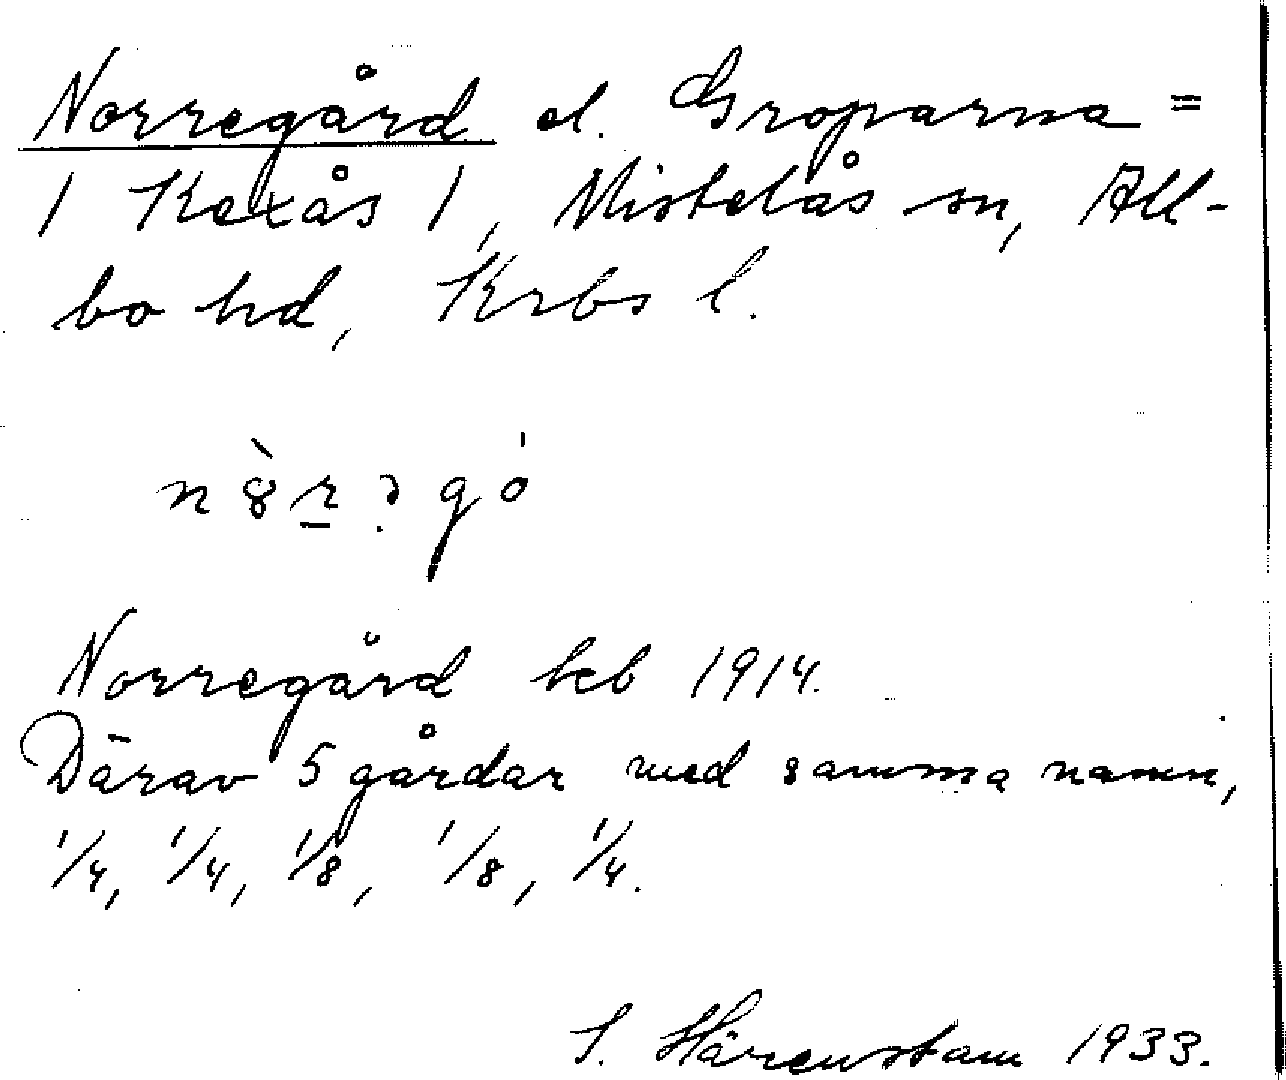 Norregård el. Groparna =
1 Kexås 1, Mistelås sn, All-
bo hd, Krbs l.
Norregård keb 1914.
Därav 5 gårdar med samma namn,
1/4, 1/4, 1/8, 1/8, 1/4.
S. Härenstam 1933.